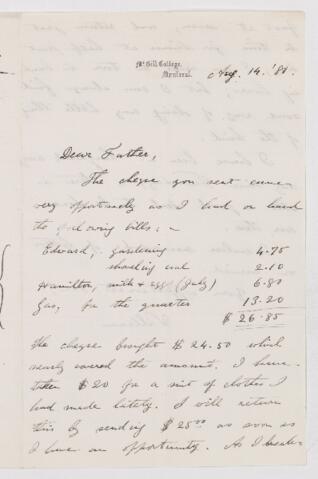 McGill College,
Montreal.
Aug. 14. '81.
Dear Father,
The cheque you sent came
very opportunely as I had on hand
the following bills: -
Edward, gardening 4.75
shoveling coal 2.10
Hamilton, milk & eggs (July) 6.80
Gas, for the quarter 13.20
$ 26.85
The cheque brought $ 24.50 which
nearly covered the amount. I have
taken $ 20 for a suit of clothes I
had made lately. I will return
this by sending $ 25.00 as soon as
I have an opportunity. As I